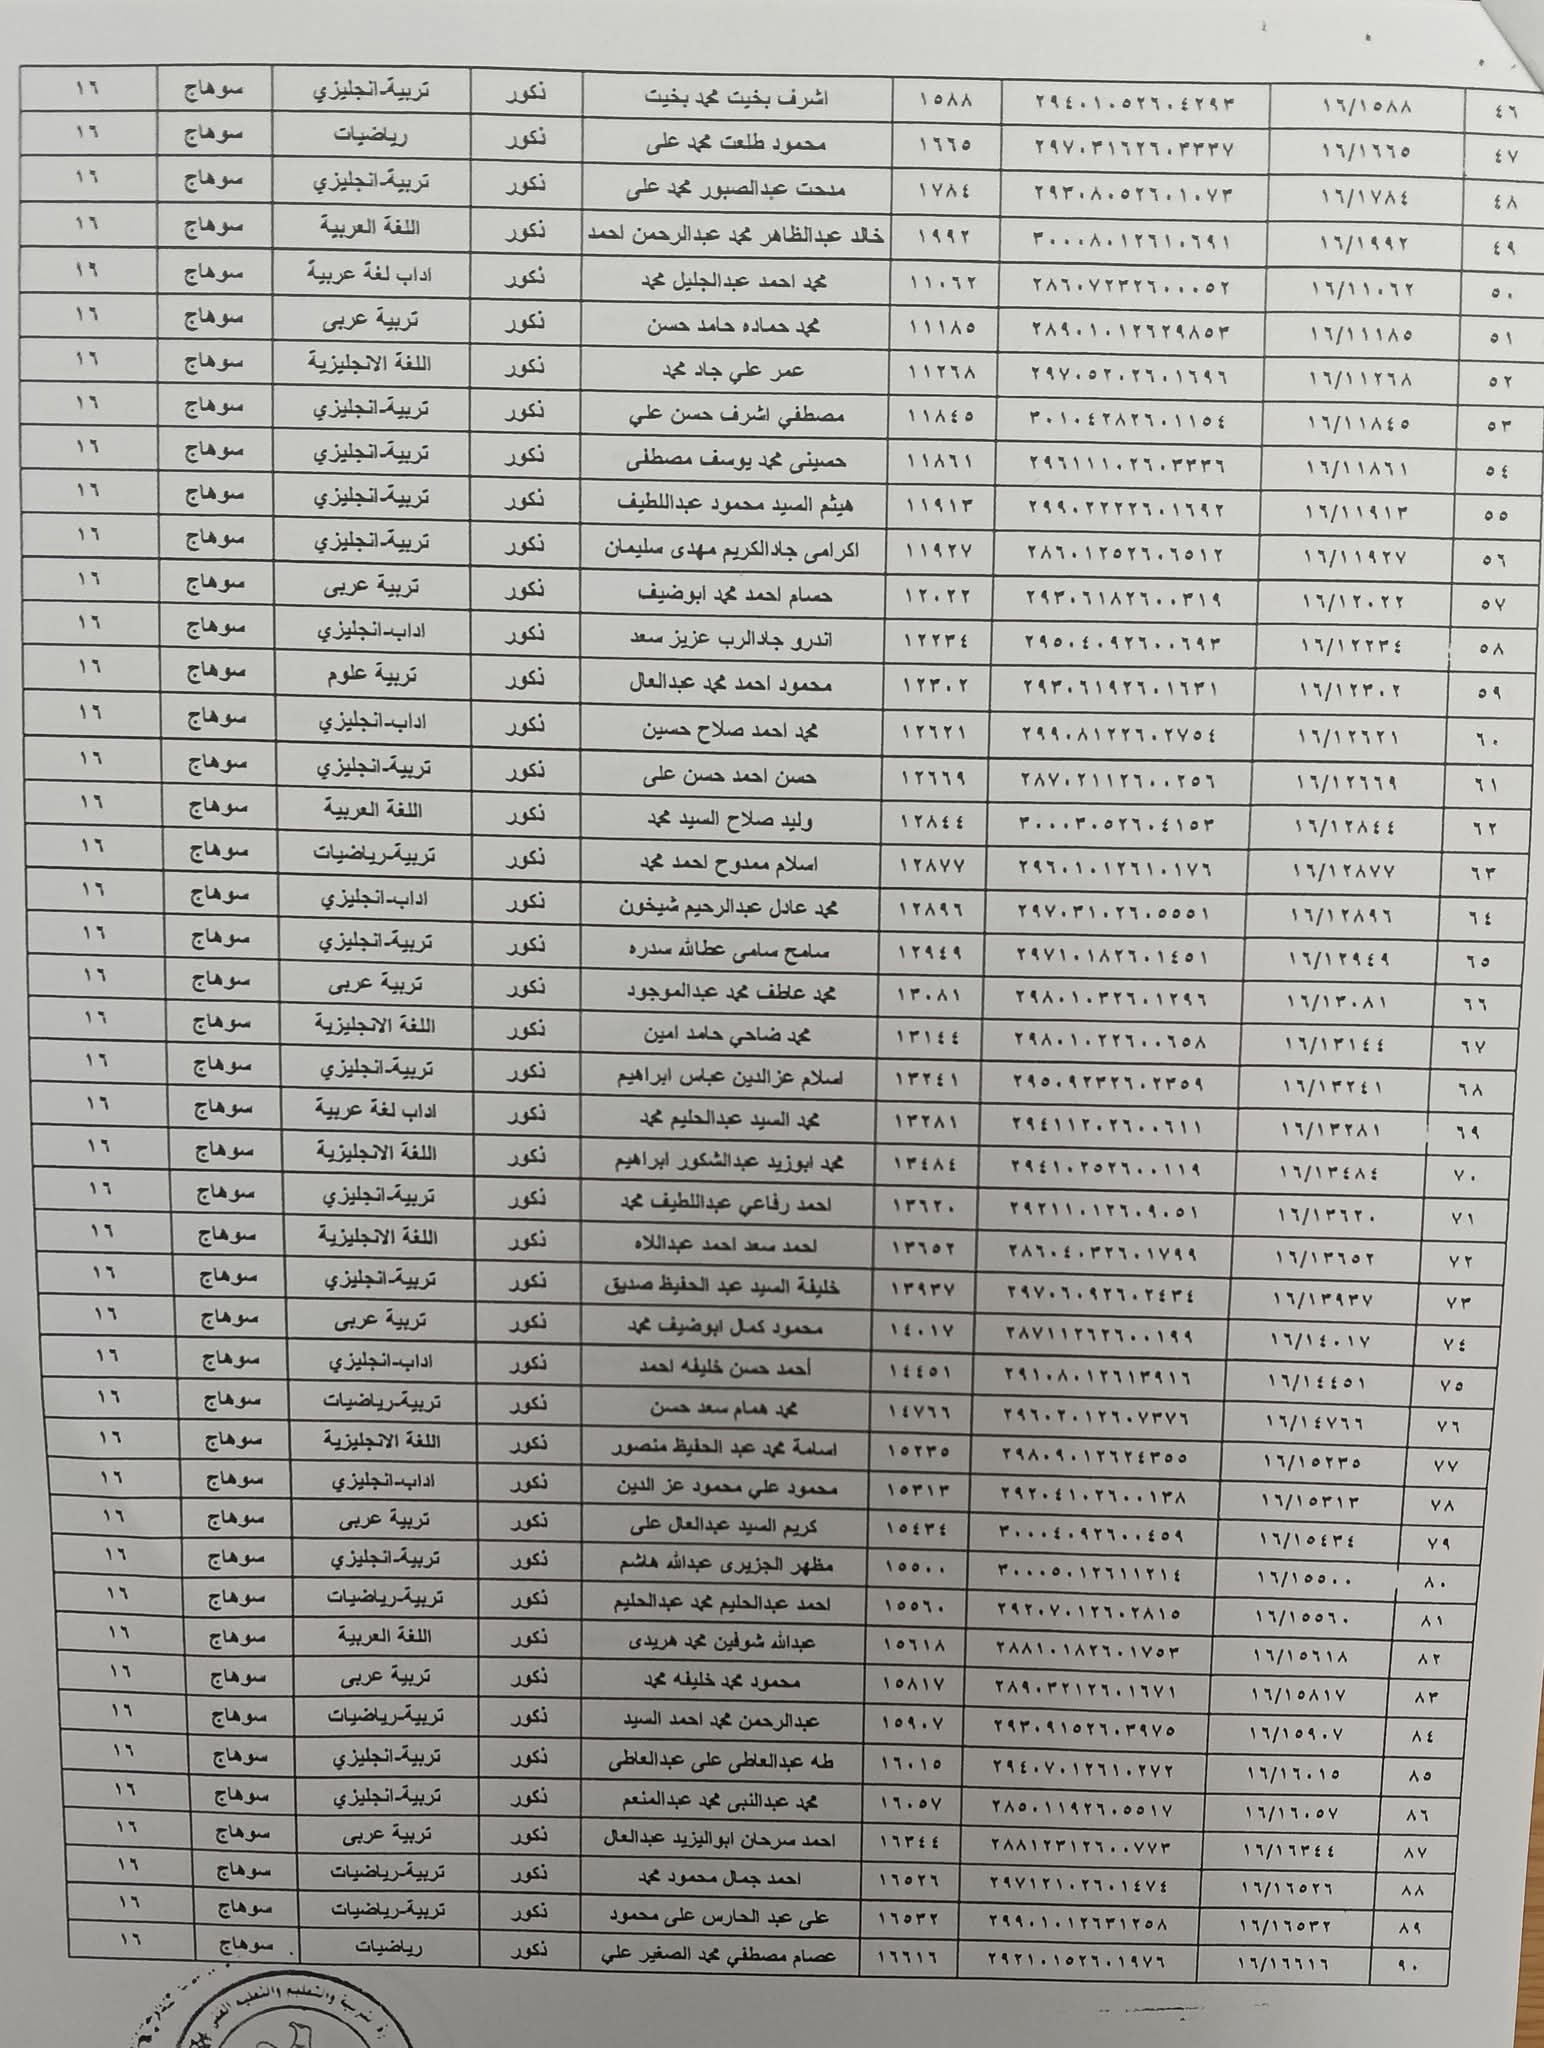 ٤٦ ١٦/١٥٨٨ ٢٩٤٠١٠٥٢٦٠٤٢٩٣ ١٥٨٨ اشرف بخيت محمد بخيت ذكور تربية-انجليزي سوهاج ١٦
٤٧ ١٦/١٦٦٥ ٢٩٧٠٣١٦٢٦٠٣٣٣٧ ١٦٦٥ محمود طلعت محمد على ذكور رياضيات سوهاج ١٦
٤٨ ١٦/١٧٨٤ ٢٩٣٠٨٠٥٢٦٠١٠٧٣ ١٧٨٤ مدحت عبدالصبور محمد على ذكور تربية-انجليزي سوهاج ١٦
٤٩ ١٦/١٩٩٢ ٣٠٠٠٨٠١٢٦١٠٦٩١ ١٩٩٢ خالد عبدالظاهر محمد عبدالرحمن احمد ذكور اللغة العربية سوهاج ١٦
٥٠ ١٦/١١٠٦٢ ٢٨٦٠٧٢٣٢٦٠٠٠٥٢ ١١٠٦٢ محمد احمد عبدالجليل محمد ذكور اداب لغة عربية سوهاج ١٦
٥١ ١٦/١١١٨٥ ٢٨٩٠١٠١٢٦٢٩٨٥٣ ١١١٨٥ محمد حماده حامد حسن ذكور تربية عربى سوهاج ١٦
٥٢ ١٦/١١٢٦٨ ٢٩٧٠٥٢٠٢٦٠١٦٩٦ ١١٢٦٨ عمر علي جاد محمد ذكور اللغة الانجليزية سوهاج ١٦
٥٣ ١٦/١١٨٤٥ ٣٠١٠٤٢٨٢٦٠١١٥٤ ١١٨٤٥ مصطفي اشرف حسن علي ذكور تربية-انجليزي سوهاج ١٦
٥٤ ١٦/١١٨٦١ ٢٩٦١١١٠٢٦٠٣٣٣٦ ١١٨٦١ حسينى محمد يوسف مصطفى ذكور تربية-انجليزي سوهاج ١٦
٥٥ ١٦/١١٩١٣ ٢٩٩٠٢٢٢٢٦٠١٦٩٢ ١١٩١٣ هيثم السيد محمود عبداللطيف ذكور تربية-انجليزي سوهاج ١٦
٥٦ ١٦/١١٩٢٧ ٢٨٦٠١٢٥٢٦٠٦٥١٢ ١١٩٢٧ اكرامى جادالكريم مهدى سليمان ذكور تربية-انجليزي سوهاج ١٦
٥٧ ١٦/١٢٠٢٢ ٢٩٣٠٦١٨٢٦٠٠٣١٩ ١٢٠٢٢ حسام احمد محمد ابوضيف ذكور تربية عربى سوهاج ١٦
٥٨ ١٦/١٢٢٣٤ ٢٩٥٠٤٠٩٢٦٠٠٦٩٣ ١٢٢٣٤ اندرو جادالرب عزيز سعد ذكور اداب-انجليزي سوهاج ١٦
٥٩ ١٦/١٢٣٠٢ ٢٩٣٠٦١٩٢٦٠١٦٣١ ١٢٣٠٢ محمود احمد محمد عبدالعال ذكور تربية علوم سوهاج ١٦
٦٠ ١٦/١٢٦٢١ ٢٩٩٠٨١٢٢٦٠٢٧٥٤ ١٢٦٢١ محمد احمد صلاح حسين ذكور اداب-انجليزي سوهاج ١٦
٦١ ١٦/١٢٦٦٩ ٢٨٧٠٢١١٢٦٠٠٢٥٦ ١٢٦٦٩ حسن احمد حسن على ذكور تربية-انجليزي سوهاج ١٦
٦٢ ١٦/١٢٨٤٤ ٣٠٠٠٣٠٥٢٦٠٤١٥٣ ١٢٨٤٤ وليد صلاح السيد محمد ذكور اللغة العربية سوهاج ١٦
٦٣ ١٦/١٢٨٧٧ ٢٩٦٠١٠١٢٦١٠١٧٦ ١٢٨٧٧ اسلام ممدوح احمد محمد ذكور تربية-رياضيات سوهاج ١٦
٦٤ ١٦/١٢٨٩٦ ٢٩٧٠٣١٠٢٦٠٥٥٥١ ١٢٨٩٦ محمد عادل عبدالرحيم شيخون ذكور اداب-انجليزي سوهاج ١٦
٦٥ ١٦/١٢٩٤٩ ٢٩٧١٠١٨٢٦٠١٤٥١ ١٢٩٤٩ سامح سامى عطالله سدره ذكور تربية-انجليزي سوهاج ١٦
٦٦ ١٦/١٣٠٨١ ٢٩٨٠١٠٣٢٦٠١٢٩٦ ١٣٠٨١ محمد عاطف محمد عبدالموجود ذكور تربية عربى سوهاج ١٦
٦٧ ١٦/١٣١٤٤ ٢٩٨٠١٠٢٢٦٠٠٦٥٨ ١٣١٤٤ محمد ضاحي حامد امين ذكور اللغة الانجليزية سوهاج ١٦
٦٨ ١٦/١٣٢٤١ ٢٩٥٠٩٢٣٢٦٠٢٣٥٩ ١٣٢٤١ اسلام عزالدين عباس ابراهيم ذكور تربية-انجليزي سوهاج ١٦
٦٩ ١٦/١٣٢٨١ ٢٩٤١١٢٠٢٦٠٠٦١١ ١٣٢٨١ محمد السيد عبدالحليم محمد ذكور اداب لغة عربية سوهاج ١٦
٧٠ ١٦/١٣٤٨٤ ٢٩٤١٠٢٥٢٦٠٠١١٩ ١٣٤٨٤ محمد ابوزيد عبدالشكور ابراهيم ذكور اللغة الانجليزية سوهاج ١٦
٧١ ١٦/١٣٦٢٠ ٢٩٢١١٠١٢٦٠٩٠٥١ ١٣٦٢٠ احمد رفاعي عبداللطيف محمد ذكور تربية-انجليزي سوهاج ١٦
٧٢ ١٦/١٣٦٥٢ ٢٨٦٠٤٠٣٢٦٠١٧٩٩ ١٣٦٥٢ احمد سعد احمد عبداللاه ذكور اللغة الانجليزية سوهاج ١٦
٧٣ ١٦/١٣٩٣٧ ٢٩٧٠٦٠٩٢٦٠٢٤٣٤ ١٣٩٣٧ خليفة السيد عبد الحفيظ صديق ذكور تربية-انجليزي سوهاج ١٦
٧٤ ١٦/١٤٠١٧ ٢٨٧١١٢٦٢٦٠٠١٩٩ ١٤٠١٧ محمود كمال ابوضيف محمد ذكور تربية عربى سوهاج ١٦
٧٥ ١٦/١٤٤٥١ ٢٩١٠٨٠١٢٦١٣٩١٦ ١٤٤٥١ أحمد حسن خليفه احمد ذكور اداب-انجليزي سوهاج ١٦
٧٦ ١٦/١٤٧٦٦ ٢٩٦٠٢٠١٢٦٠٧٣٧٦ ١٤٧٦٦ محمد همام سعد حسن ذكور تربية-رياضيات سوهاج ١٦
٧٧ ١٦/١٥٢٣٥ ٢٩٨٠٩٠١٢٦٢٤٣٥٥ ١٥٢٣٥ اسامة محمد عبد الحفيظ منصور ذكور اللغة الانجليزية سوهاج ١٦
٧٨ ١٦/١٥٣١٣ ٢٩٢٠٤١٠٢٦٠٠١٣٨ ١٥٣١٣ محمود علي محمود عز الدين ذكور اداب-انجليزي سوهاج ١٦
٧٩ ١٦/١٥٤٣٤ ٣٠٠٠٤٠٩٢٦٠٠٤٥٩ ١٥٤٣٤ كريم السيد عبدالعال على ذكور تربية عربى سوهاج ١٦
٨٠ ١٦/١٥٥٠٠ ٣٠٠٠٥٠١٢٦١١٢١٤ ١٥٥٠٠ مظهر الجزيرى عبدالله هاشم ذكور تربية-انجليزي سوهاج ١٦
٨١ ١٦/١٥٥٦٠ ٢٩٢٠٧٠١٢٦٠٢٨١٥ ١٥٥٦٠ احمد عبدالحليم محمد عبدالحليم ذكور تربية-رياضيات سوهاج ١٦
٨٢ ١٦/١٥٦١٨ ٢٨٨١٠١٨٢٦٠١٧٥٣ ١٥٦١٨ عبدالله شوفين محمد هريدى ذكور اللغة العربية سوهاج ١٦
٨٣ ١٦/١٥٨١٧ ٢٨٩٠٣٢١٢٦٠١٦٧١ ١٥٨١٧ محمود محمد خليفه محمد ذكور تربية عربى سوهاج ١٦
٨٤ ١٦/١٥٩٠٧ ٢٩٣٠٩١٥٢٦٠٣٩٧٥ ١٥٩٠٧ عبدالرحمن محمد احمد السيد ذكور تربية-رياضيات سوهاج ١٦
٨٥ ١٦/١٦٠١٥ ٢٩٤٠٧٠١٢٦١٠٢٧٢ ١٦٠١٥ طه عبدالعاطى على عبدالعاطى ذكور تربية-انجليزي سوهاج ١٦
٨٦ ١٦/١٦٠٥٧ ٢٨٥٠١١٩٢٦٠٥٥١٧ ١٦٠٥٧ محمد عبدالنبى محمد عبدالمنعم ذكور تربية-انجليزي سوهاج ١٦
٨٧ ١٦/١٦٣٤٤ ٢٨٨١٢٣١٢٦٠٠٧٧٣ ١٦٣٤٤ احمد سرحان ابواليزيد عبدالعال ذكور تربية عربى سوهاج ١٦
٨٨ ١٦/١٦٥٢٦ ٢٩٧١٢١٠٢٦٠١٤٧٤ ١٦٥٢٦ احمد جمال محمود محمد ذكور تربية-رياضيات سوهاج ١٦
٨٩ ١٦/١٦٥٣٢ ٢٩٩٠١٠١٢٦٣١٢٥٨ ١٦٥٣٢ على عبد الحارس على محمود ذكور تربية-رياضيات سوهاج ١٦
٩٠ ١٦/١٦٦١٦ ٢٩٢١٠١٥٢٦٠١٩٧٦ ١٦٦١٦ عصام مصطفي محمد الصغير علي ذكور رياضيات سوهاج ١٦
والتعليم والتعليم الفني